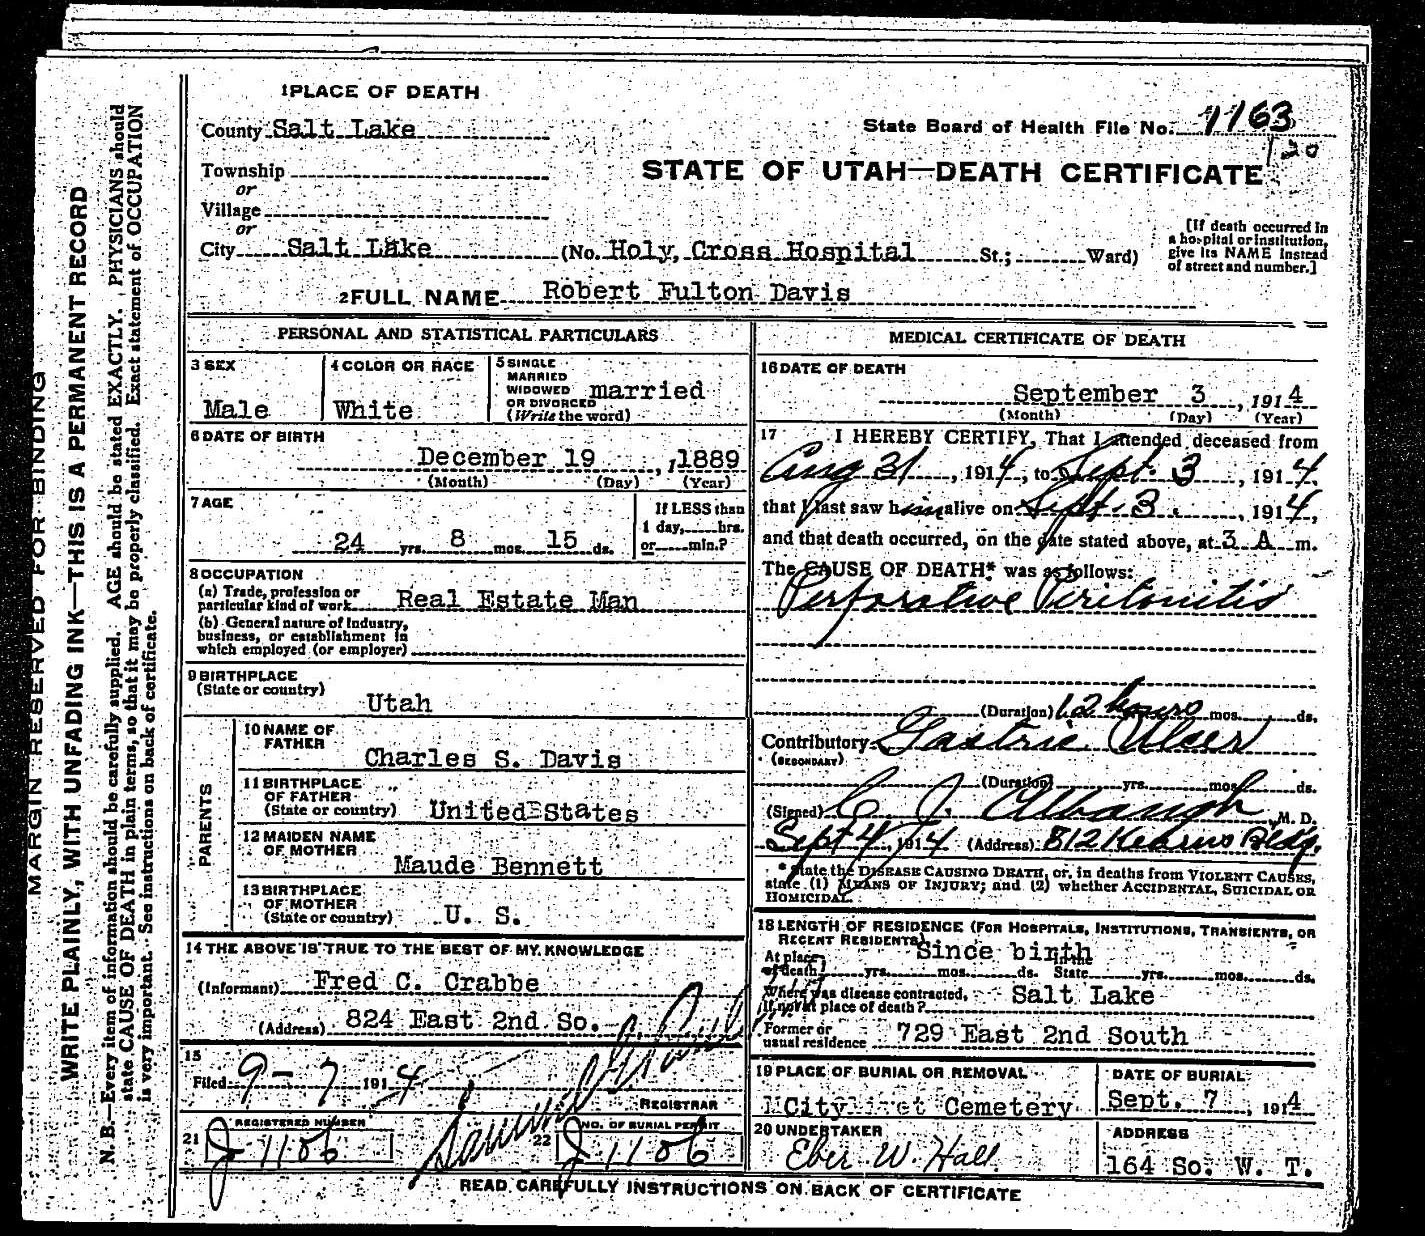 1 PLACE OF DEATH
County Salt Lake
State Board of Health File No. 1163
120
Township
or
Village
or
STATE OF UTAH—DEATH CERTIFICATE
City Salt Lake (No. Holy, Cross Hospital St.; Ward)
[If death occurred in
a hospital or institution,
give its NAME instead
of street and number.]
2 FULL NAME Robert Fulton Davis
PERSONAL AND STATISTICAL PARTICULARS
3 SEX
Male
4 COLOR OR RACE
White
5 SINGLE
MARRIED
WIDOWED
OR DIVORCED
(Write the word)
married
6 DATE OF BIRTH
December 19, 1889
(Month) (Day) (Year)
7 AGE
24 yrs. 8 mos. 15 ds.
If LESS than
1 day, hrs.
or min.?
8 OCCUPATION
(a) Trade, profession or
particular kind of work Real Estate Man
(b) General nature of industry,
business, or establishment in
which employed (or employer)
9 BIRTHPLACE
(State or country)
Utah
PARENTS
10 NAME OF
FATHER
Charles S. Davis
11 BIRTHPLACE
OF FATHER
(State or country) United States
12 MAIDEN NAME
OF MOTHER
Maude Bennett
13 BIRTHPLACE
OF MOTHER
(State or country) U. S.
14 THE ABOVE IS TRUE TO THE BEST OF MY KNOWLEDGE
(Informant) Fred C. Crabbe
(Address) 824 East 2nd So.
15
Filed 9-7 1914
REGISTRAR
21 REGISTERED NUMBER
J 1106
22 NO. OF BURIAL PERMIT
J 1106
MEDICAL CERTIFICATE OF DEATH
16 DATE OF DEATH
September 3, 1914
(Month) (Day) (Year)
17 I HEREBY CERTIFY, That I attended deceased from
Aug 31, 1914, to Sept. 3, 1914,
that I last saw him alive on Sept. 3, 1914,
and that death occurred, on the date stated above, at 3 A m.
The CAUSE OF DEATH* was as follows:
Perforative Peritonitis
(Duration) 12 hours mos. ds.
Contributory Gastric Ulcer
(SECONDARY)
(Duration) yrs. mos. ds.
(Signed) C. J. Albaugh, M. D.
Sept 4, 1914 (Address) 812 Kearns Bldg.
* State the DISEASE CAUSING DEATH, or, in deaths from VIOLENT CAUSES,
state (1) MEANS OF INJURY; and (2) whether ACCIDENTAL, SUICIDAL OR
HOMICIDAL.
18 LENGTH OF RESIDENCE (FOR HOSPITALS, INSTITUTIONS, TRANSIENTS, OR
RECENT RESIDENTS)
Since birth
At place of death yrs. mos. ds. In the State yrs. mos. ds.
Where was disease contracted,
if not at place of death? Salt Lake
Former or
usual residence 729 East 2nd South
19 PLACE OF BURIAL OR REMOVAL
City Cemetery
DATE OF BURIAL
Sept. 7, 1914
20 UNDERTAKER
Eber W. Hall
ADDRESS
164 So. W. T.
READ CAREFULLY INSTRUCTIONS ON BACK OF CERTIFICATE
MARGIN RESERVED FOR BINDING
WRITE PLAINLY, WITH UNFADING INK—THIS IS A PERMANENT RECORD
N. B.—Every item of information should be carefully supplied. AGE should be stated EXACTLY. PHYSICIANS should
state CAUSE OF DEATH in plain terms, so that it may be properly classified. Exact statement of OCCUPATION
is very important. See instructions on back of certificate.